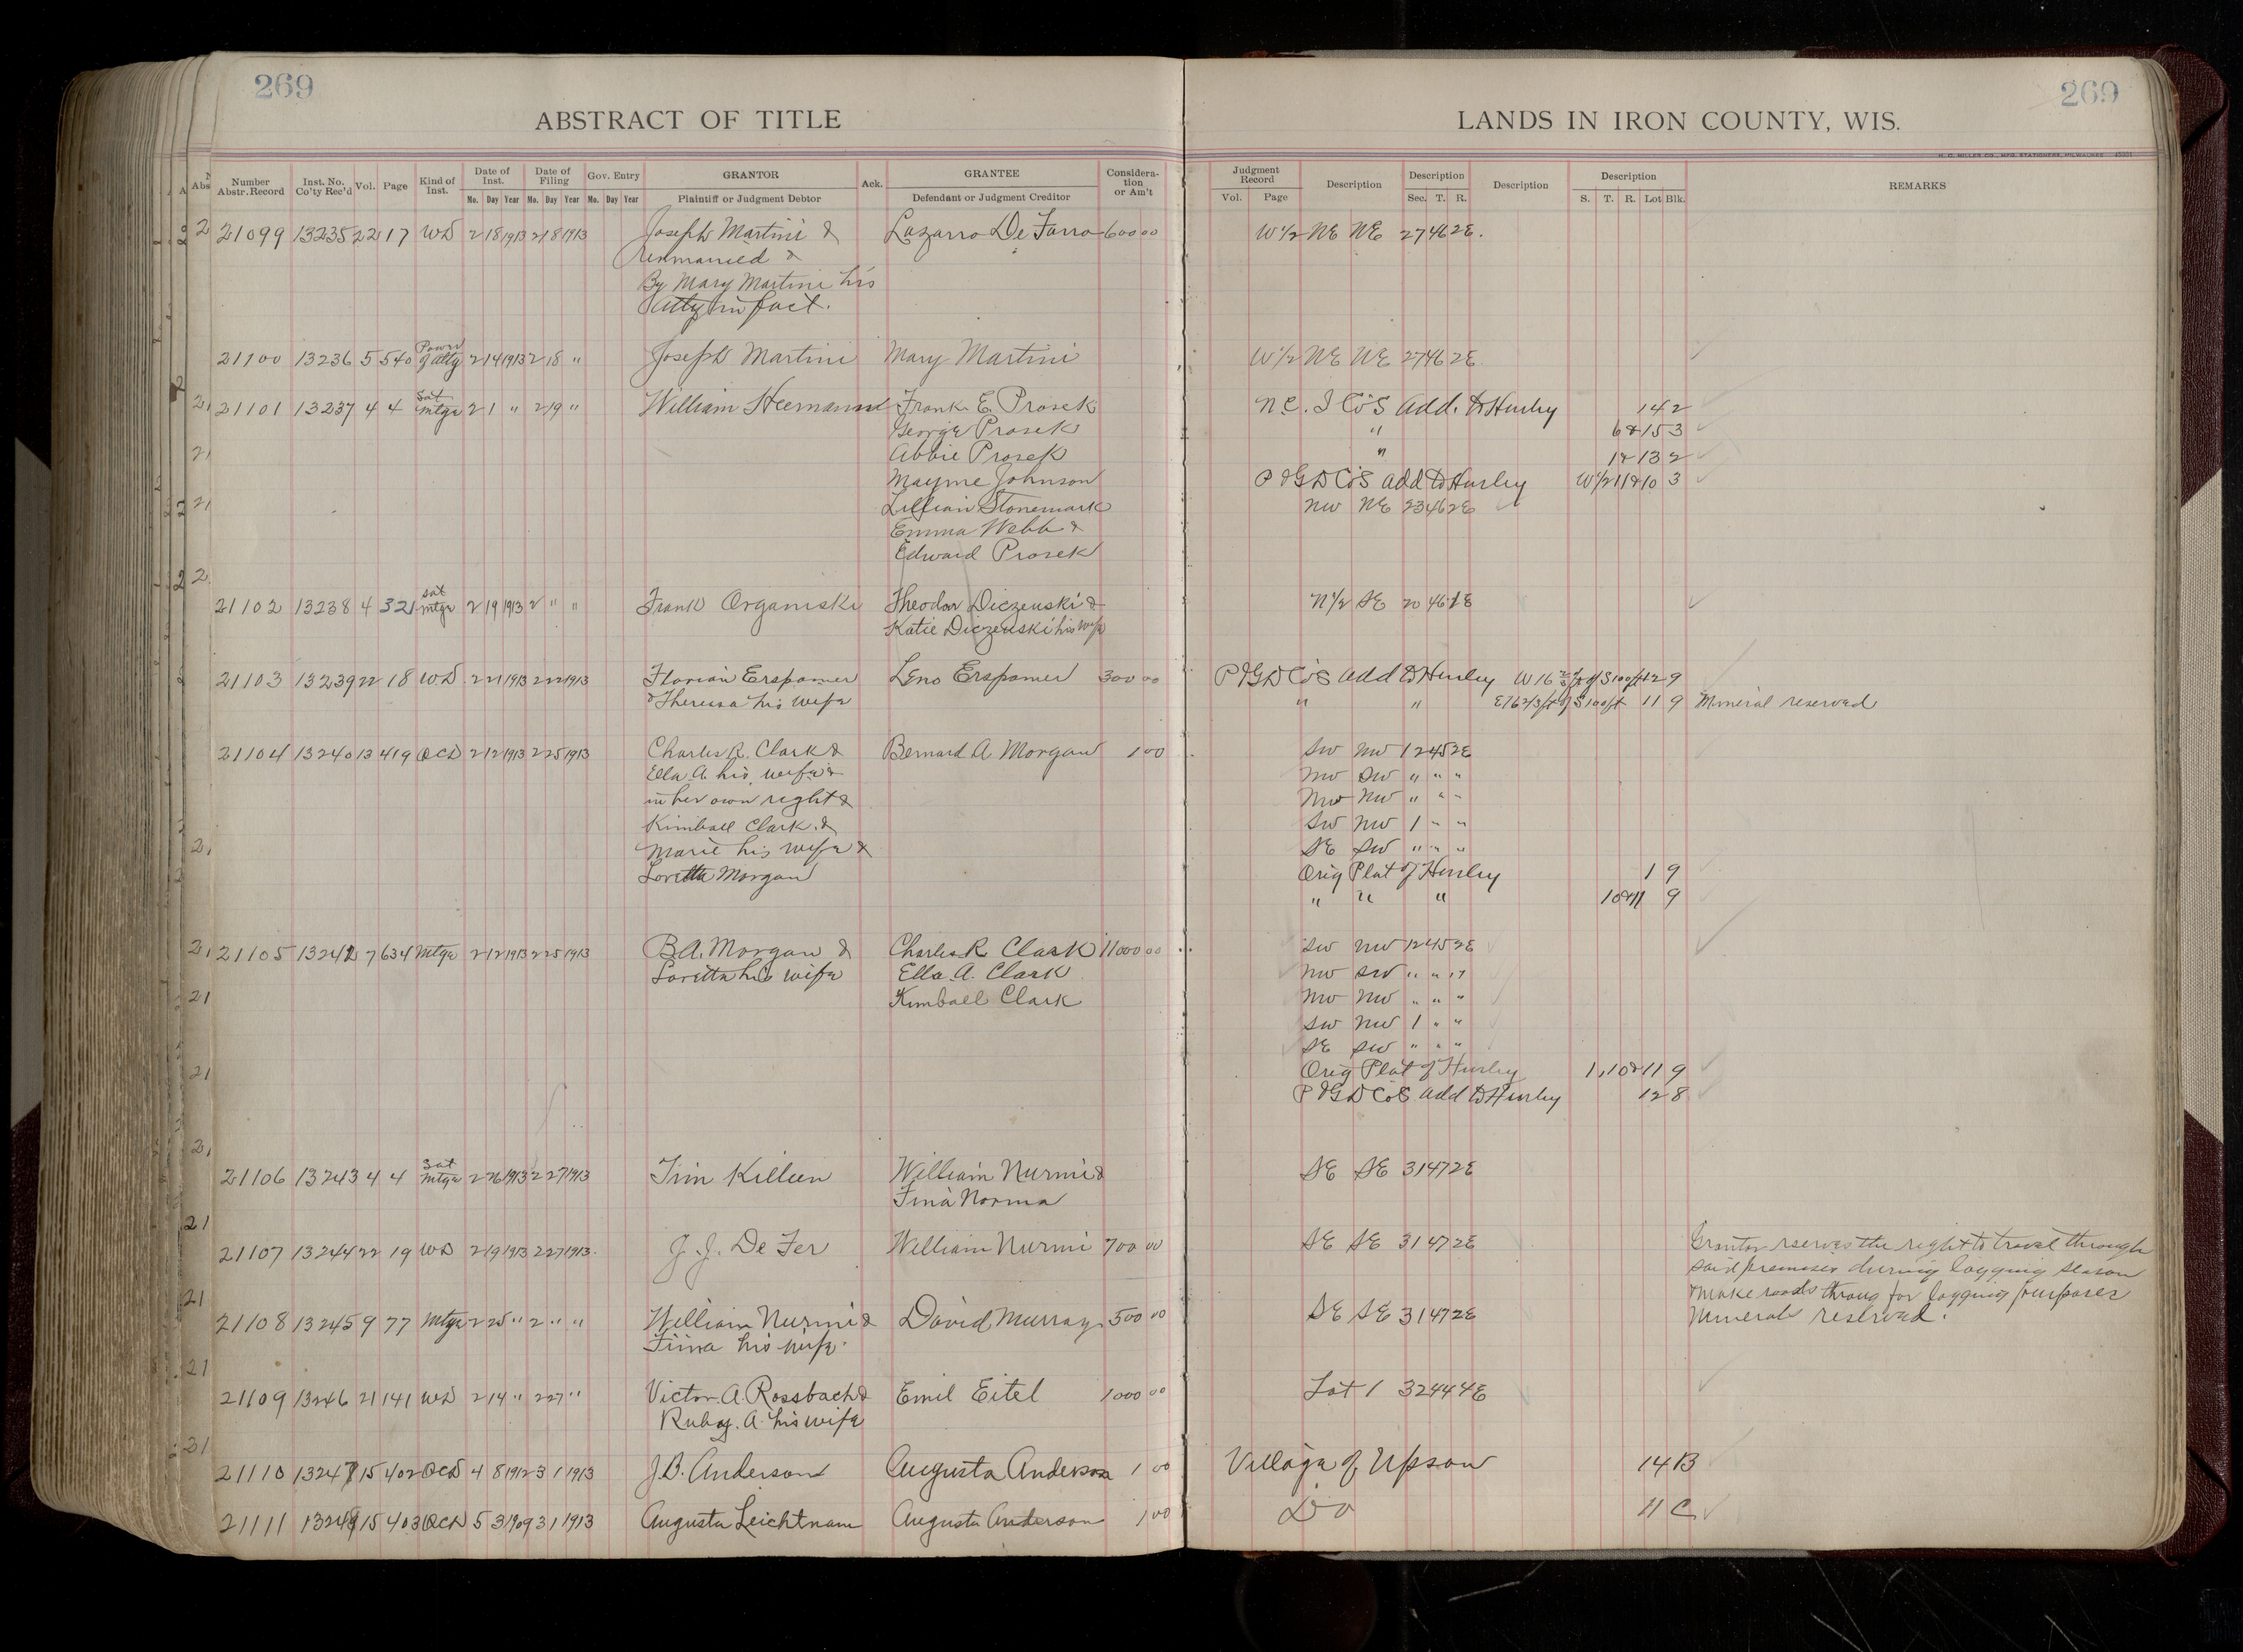 269
269
ABSTRACT OF TITLE
LANDS IN IRON COUNTY, WIS.
H. C. MILLER CO., MFG. STATIONERS, MILWAUKEE
Number Abstr. Record | Inst. No. Co'ty Rec'd | Vol. | Page | Kind of Inst. | Date of Inst. Mo. Day Year | Date of Filing Mo. Day Year | Gov. Entry Mo. Day Year | GRANTOR Plaintiff or Judgment Debtor | Ack. | GRANTEE Defendant or Judgment Creditor | Considera-tion or Am't | Judgment Record Vol. Page | Description | Description Sec. T. R. | Description | Description S. T. R. Lot Blk. | REMARKS
21099 13235 22 17 WD 2 18 1913 2 18 1913 Joseph Martini & Lazarro De Farro 600 00 W1/2 NE NE 27 46 2E.
Unmarried &
By Mary Martini his
Atty in fact.
21100 13236 5 540 Power of Atty 2 14 1913 2 18 " Joseph Martini Mary Martini W1/2 NE NE 27 46 2E
21101 13237 4 4 Sat Mtge 2 1 " 2 19 " William Heemann Frank E. Prosek N.C. I Co's Add. to Hurley 14 2
George Prosek " 6 & 15 3
Abbie Prosek " 1 & 13 2
Mayme Johnson P & G D Co's Add to Hurley W1/2 11 & 10 3
Lillian Stonemark NW NE 23 46 2E
Emma Webb &
Edward Prosek
21102 13238 4 321 Sat Mtge 2 19 1913 2 " " Frank Organiski Theodor Diczenski & N1/2 SE 20 46 1E
Katie Diczenski his wife
21103 13239 22 18 WD 2 21 1913 2 22 1913 Florian Erspamer Leno Erspamer 300 00 P & G D Co's Add to Hurley W 16 2/3 ft of S 100 ft 12 9
& Theresa his wife " " E 16 2/3 ft of S 100 ft 11 9 Mineral reserved
21104 13240 13 419 QCD 2 12 1913 2 25 1913 Charles R. Clark & Bernard A Morgan 1 00 SW NW 12 45 2E
Ella A. his wife & NW SW " " "
in her own right & NW NW " " "
Kimball Clark & SW NW 1 " "
Marie his wife & SE SW " " "
Loretta Morgan Orig Plat of Hurley 1 9
" " " 10 & 11 9
21105 13242 7 634 Mtge 2 12 1913 2 25 1913 B.A. Morgan & Charles R Clark 11000 00 SW NW 12 45 2E
Loretta his wife Ella A. Clark NW SW " " "
Kimball Clark NW NW " " "
SW NW 1 " "
SE SW " " "
Orig Plat of Hurley 1, 10 & 11 9
P & G D Co's Add to Hurley 12 8
21106 13243 4 4 Sat Mtge 2 26 1913 2 27 1913 Tim Killeen William Nurmi & SE SE 31 47 2E
Fina Norma
21107 13244 22 19 WD 2 19 1913 2 27 1913. J. J. De Fer William Nurmi 700 00 SE SE 31 47 2E Grantor reserves the right to travel through
said premises during logging season
& make roads throug for logging purposes
Minerals reserved.
21108 13245 9 77 Mtge 2 25 " 2 " " William Nurmi & David Murray 500 00 SE SE 31 47 2E
Fiina his wife
21109 13246 21 141 WD 2 14 " 2 27 " Victor A. Rossbach & Emil Eitel 1000 00 Lot 1 32 44 4E
Ruby. A. his wife
21110 13247 15 402 QCD 4 8 1912 3 1 1913 J.B. Anderson Augusta Anderson 1 00 Village of Upson 14 B
21111 13248 15 403 QCD 5 3 1909 3 1 1913 Augusta Leichtnam Augusta Anderson 1 00 Do 11 C